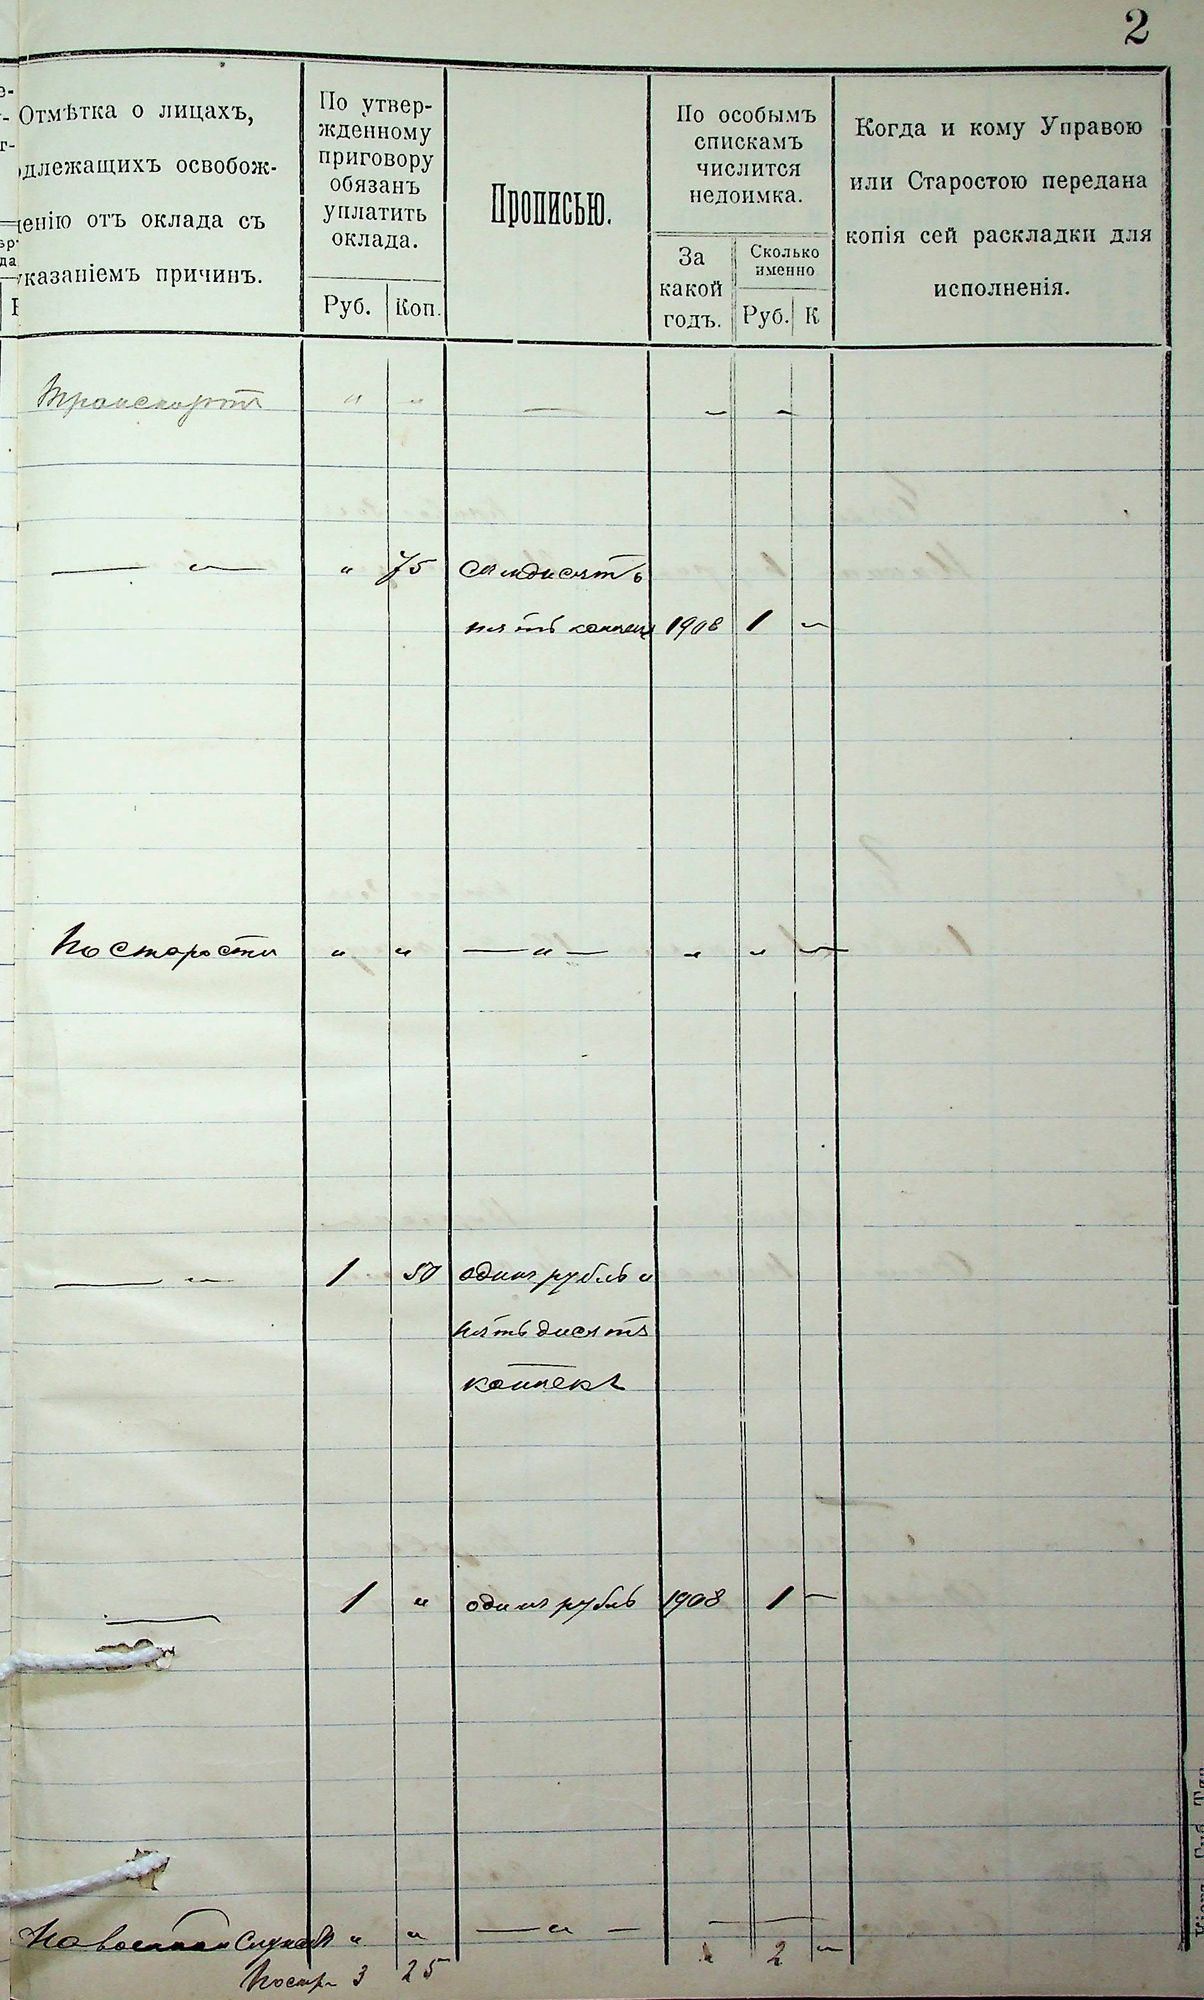 2
Отмѣтка о лицахъ,
длежащихъ освобож-
енію отъ оклада съ
указаніемъ причинъ.
По утвер-
жденному
приговору
обязанъ
уплатить
оклада.
Руб. Коп.
Прописью.
По особымъ
спискамъ
числится
недоимка.
За
какой
годъ.
Сколько
именно
Руб. К
Когда и кому Управою
или Старостою передана
копія сей раскладки для
исполненія.
Транспортъ " " — — —
— " — " 75 семидесятъ
пять копеекъ 1908 1 —
По старости " " — " — " " —
— " — 1 50 одинъ рубль и
пятьдесятъ
копеекъ
— 1 " одинъ рубль 1908 1 —
На военной службѣ " " — " — —
Постр. 3 25 2 —